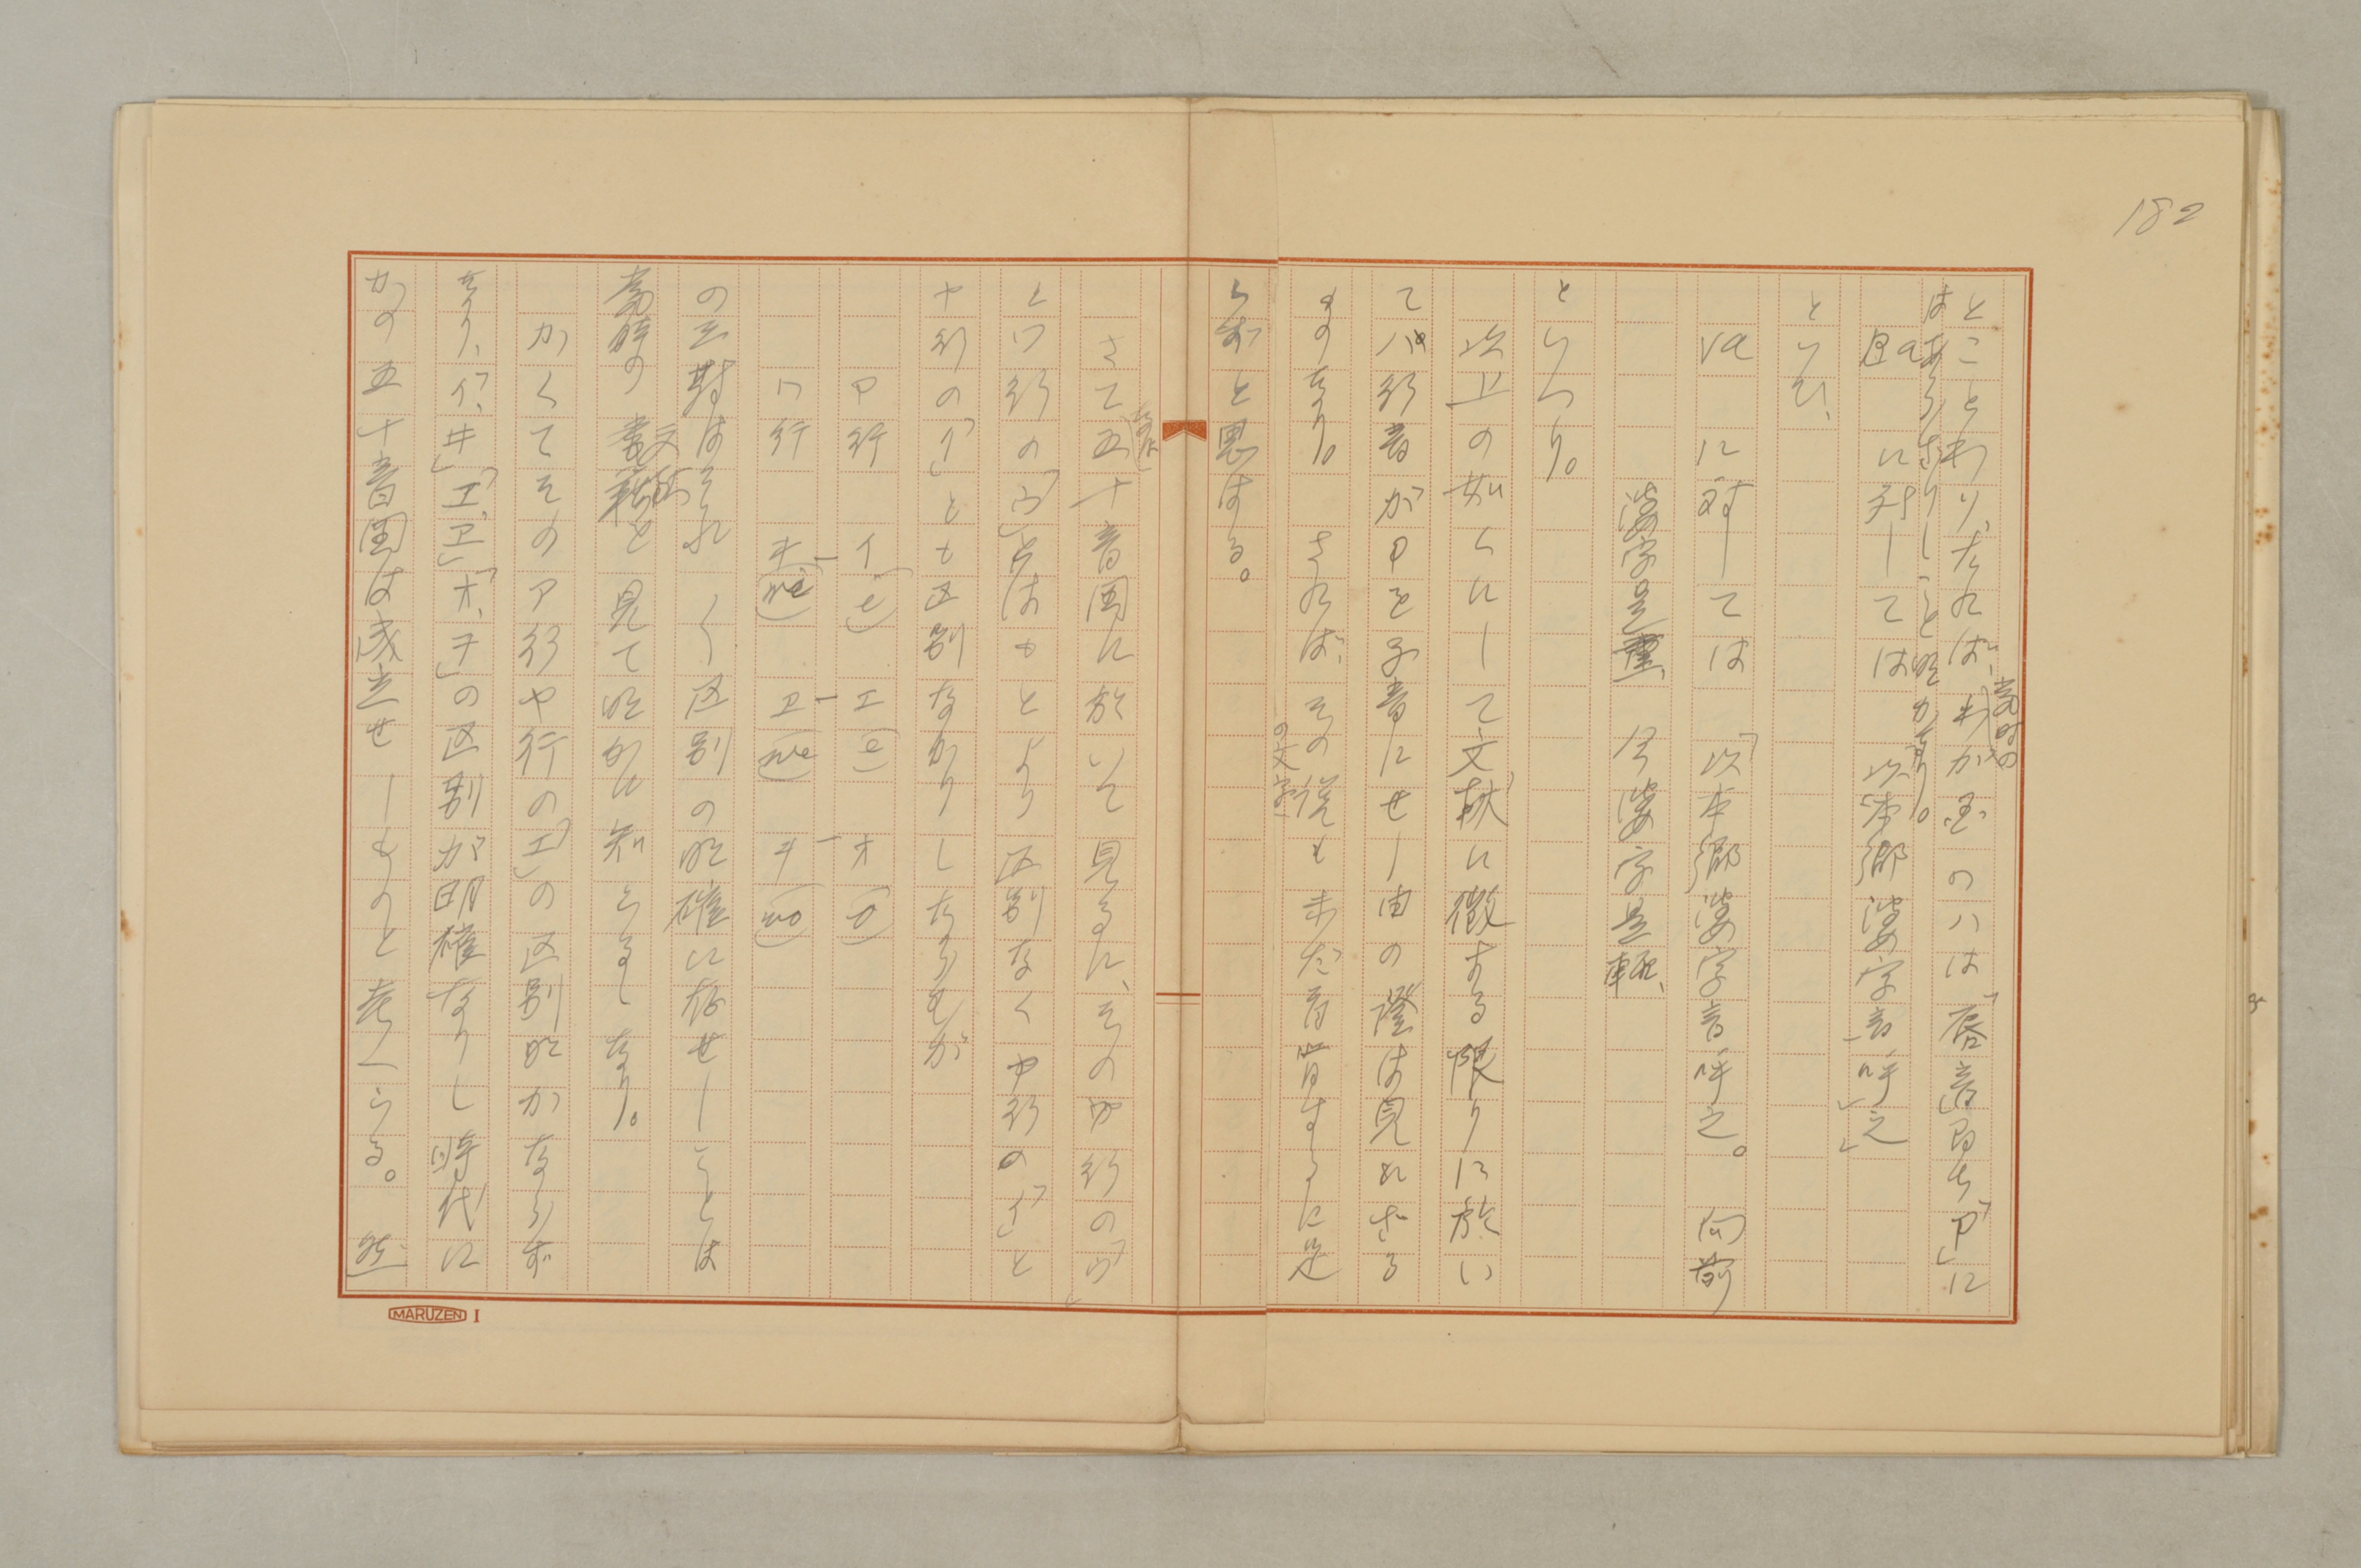 182
とことわり、たれば、わが国のハは「唇音」即ち「P」に
当時の
はあらざりしこと明かなり。
Ba に対しては 以「本郷婆字音呼之」
といひ、
va に対しては 「以本郷婆字音呼之。向前
婆字是重、今婆字是軽、
といへり。
以上の如くにして文献に徴する限りに於い
てハ行音がPを子音にせし由の證は見れざる
ものなり。 されば、その説も未だ首肯するに足
の文字
らずと思はる。
さて五十音図に於いて見るに、そのア行の「ウ」
とワ行の「ウ」とはもとより区別なくア行の「イ」と
ヤ行の「イ」とも区別なかりしならむが
ア行 イ(i) エ(e) オ(o)
ワ行 ヰ(wi) ヱ(we) ヲ(wo)
の三對はそれ〳〵区別の明確に存せしことは
当時の文献を見て明かに知らるゝなり。
かくてそのア行ヤ行の「エ」の区別明かならず
なり、「イ、ヰ」「エ、ヱ」「オ、ヲ」の区別が明確なりし時代に
かの五十音図は成立せしものと考へらる。 然
MARUZEN I